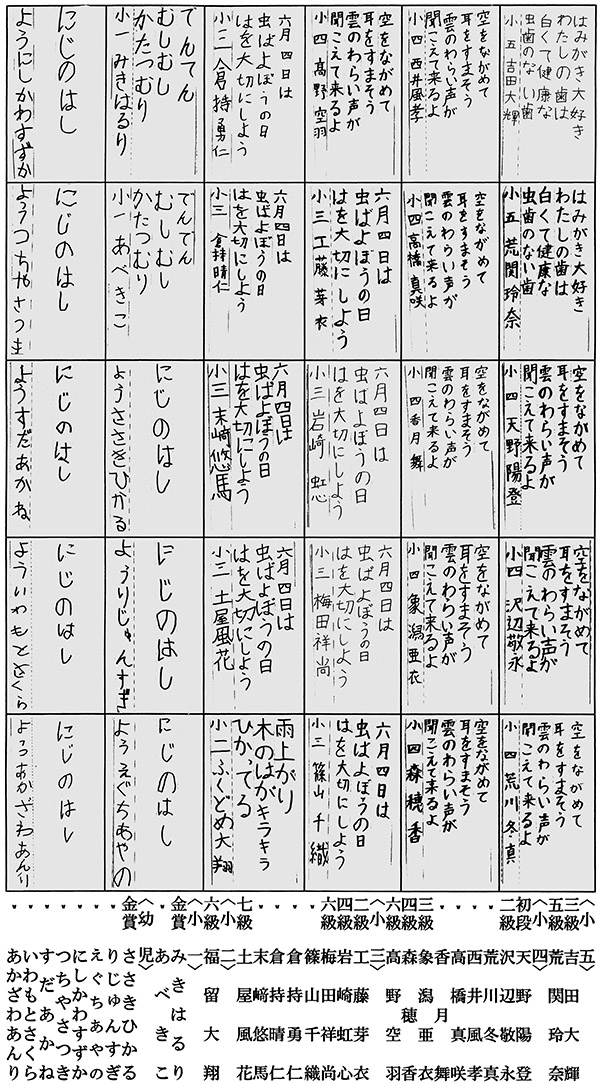 はみがき大好き
わたしの歯は
白くて健康な
虫歯のない歯
小五 吉田大輝
はみがき大好き
わたしの歯は
白くて健康な
虫歯のない歯
小五 荒関玲奈
空をながめて
耳をすまそう
雲のわらい声が
聞こえて来るよ
小四 天野陽登
空をながめて
耳をすまそう
雲のわらい声が
聞こえて来るよ
小四 沢辺敬永
空をながめて
耳をすまそう
雲のわらい声が
聞こえて来るよ
小四 荒川冬真
空をながめて
耳をすまそう
雲のわらい声が
聞こえて来るよ
小四 西井風孝
空をながめて
耳をすまそう
雲のわらい声が
聞こえて来るよ
小四 高橋真咲
空をながめて
耳をすまそう
雲のわらい声が
聞こえて来るよ
小四 香月舞
空をながめて
耳をすまそう
雲のわらい声が
聞こえて来るよ
小四 象潟亜衣
空をながめて
耳をすまそう
雲のわらい声が
聞こえて来るよ
小四 森穂香
空をながめて
耳をすまそう
雲のわらい声が
聞こえて来るよ
小四 高野空羽
六月四日は
虫ばよぼうの日
はを大切にしよう
小三 工藤芽衣
六月四日は
虫ばよぼうの日
はを大切にしよう
小三 岩崎虹心
六月四日は
虫ばよぼうの日
はを大切にしよう
小三 梅田祥尚
六月四日は
虫ばよぼうの日
はを大切にしよう
小三 篠山千織
六月四日は
虫ばよぼうの日
はを大切にしよう
小三 倉持勇仁
六月四日は
虫ばよぼうの日
はを大切にしよう
小三 倉持晴仁
六月四日は
虫ばよぼうの日
はを大切にしよう
小三 末﨑悠馬
六月四日は
虫ばよぼうの日
はを大切にしよう
小三 土屋風花
雨上がり
木のはがキラキラ
ひかってる
小二 ふくどめ大翔
でんでん
むしむし
かたつむり
小一 みきはるり
でんでん
むしむし
かたつむり
小一 あべきこ
にじのはし
ようささきひかる
にじのはし
ようりじゅんすぎ
にじのはし
ようえぐちあやの
にじのはし
ようにしかわすずか
にじのはし
ようつちやさつき
にじのはし
ようすだあかね
にじのはし
よういわもとさくら
にじのはし
ようあかざわあんり
〈小五〉
三級 吉田大輝
五級 荒関玲奈
〈小四〉
初段 天野陽登
二級 沢辺敬永
〃 荒川冬真
〃 西井風孝
〃 高橋真咲
〃 香月舞
三級 象潟亜衣
四級 森穂香
〃 高野空羽
〈小三〉
二級 工藤芽衣
四級 岩崎虹心
〃 梅田祥尚
六級 篠山千織
〃 倉持勇仁
〃 倉持晴仁
〃 末﨑悠馬
七級 土屋風花
〈小二〉
六級 福留大翔
〈小一〉
金賞 みきはるり
〃 あべきこ
〈幼児〉
金賞 ささきひかる
〃 りじゅんすぎ
〃 えぐちあやの
〃 にしかわすずか
〃 つちやさつき
〃 すだあかね
〃 いわもとさくら
〃 あかざわあんり